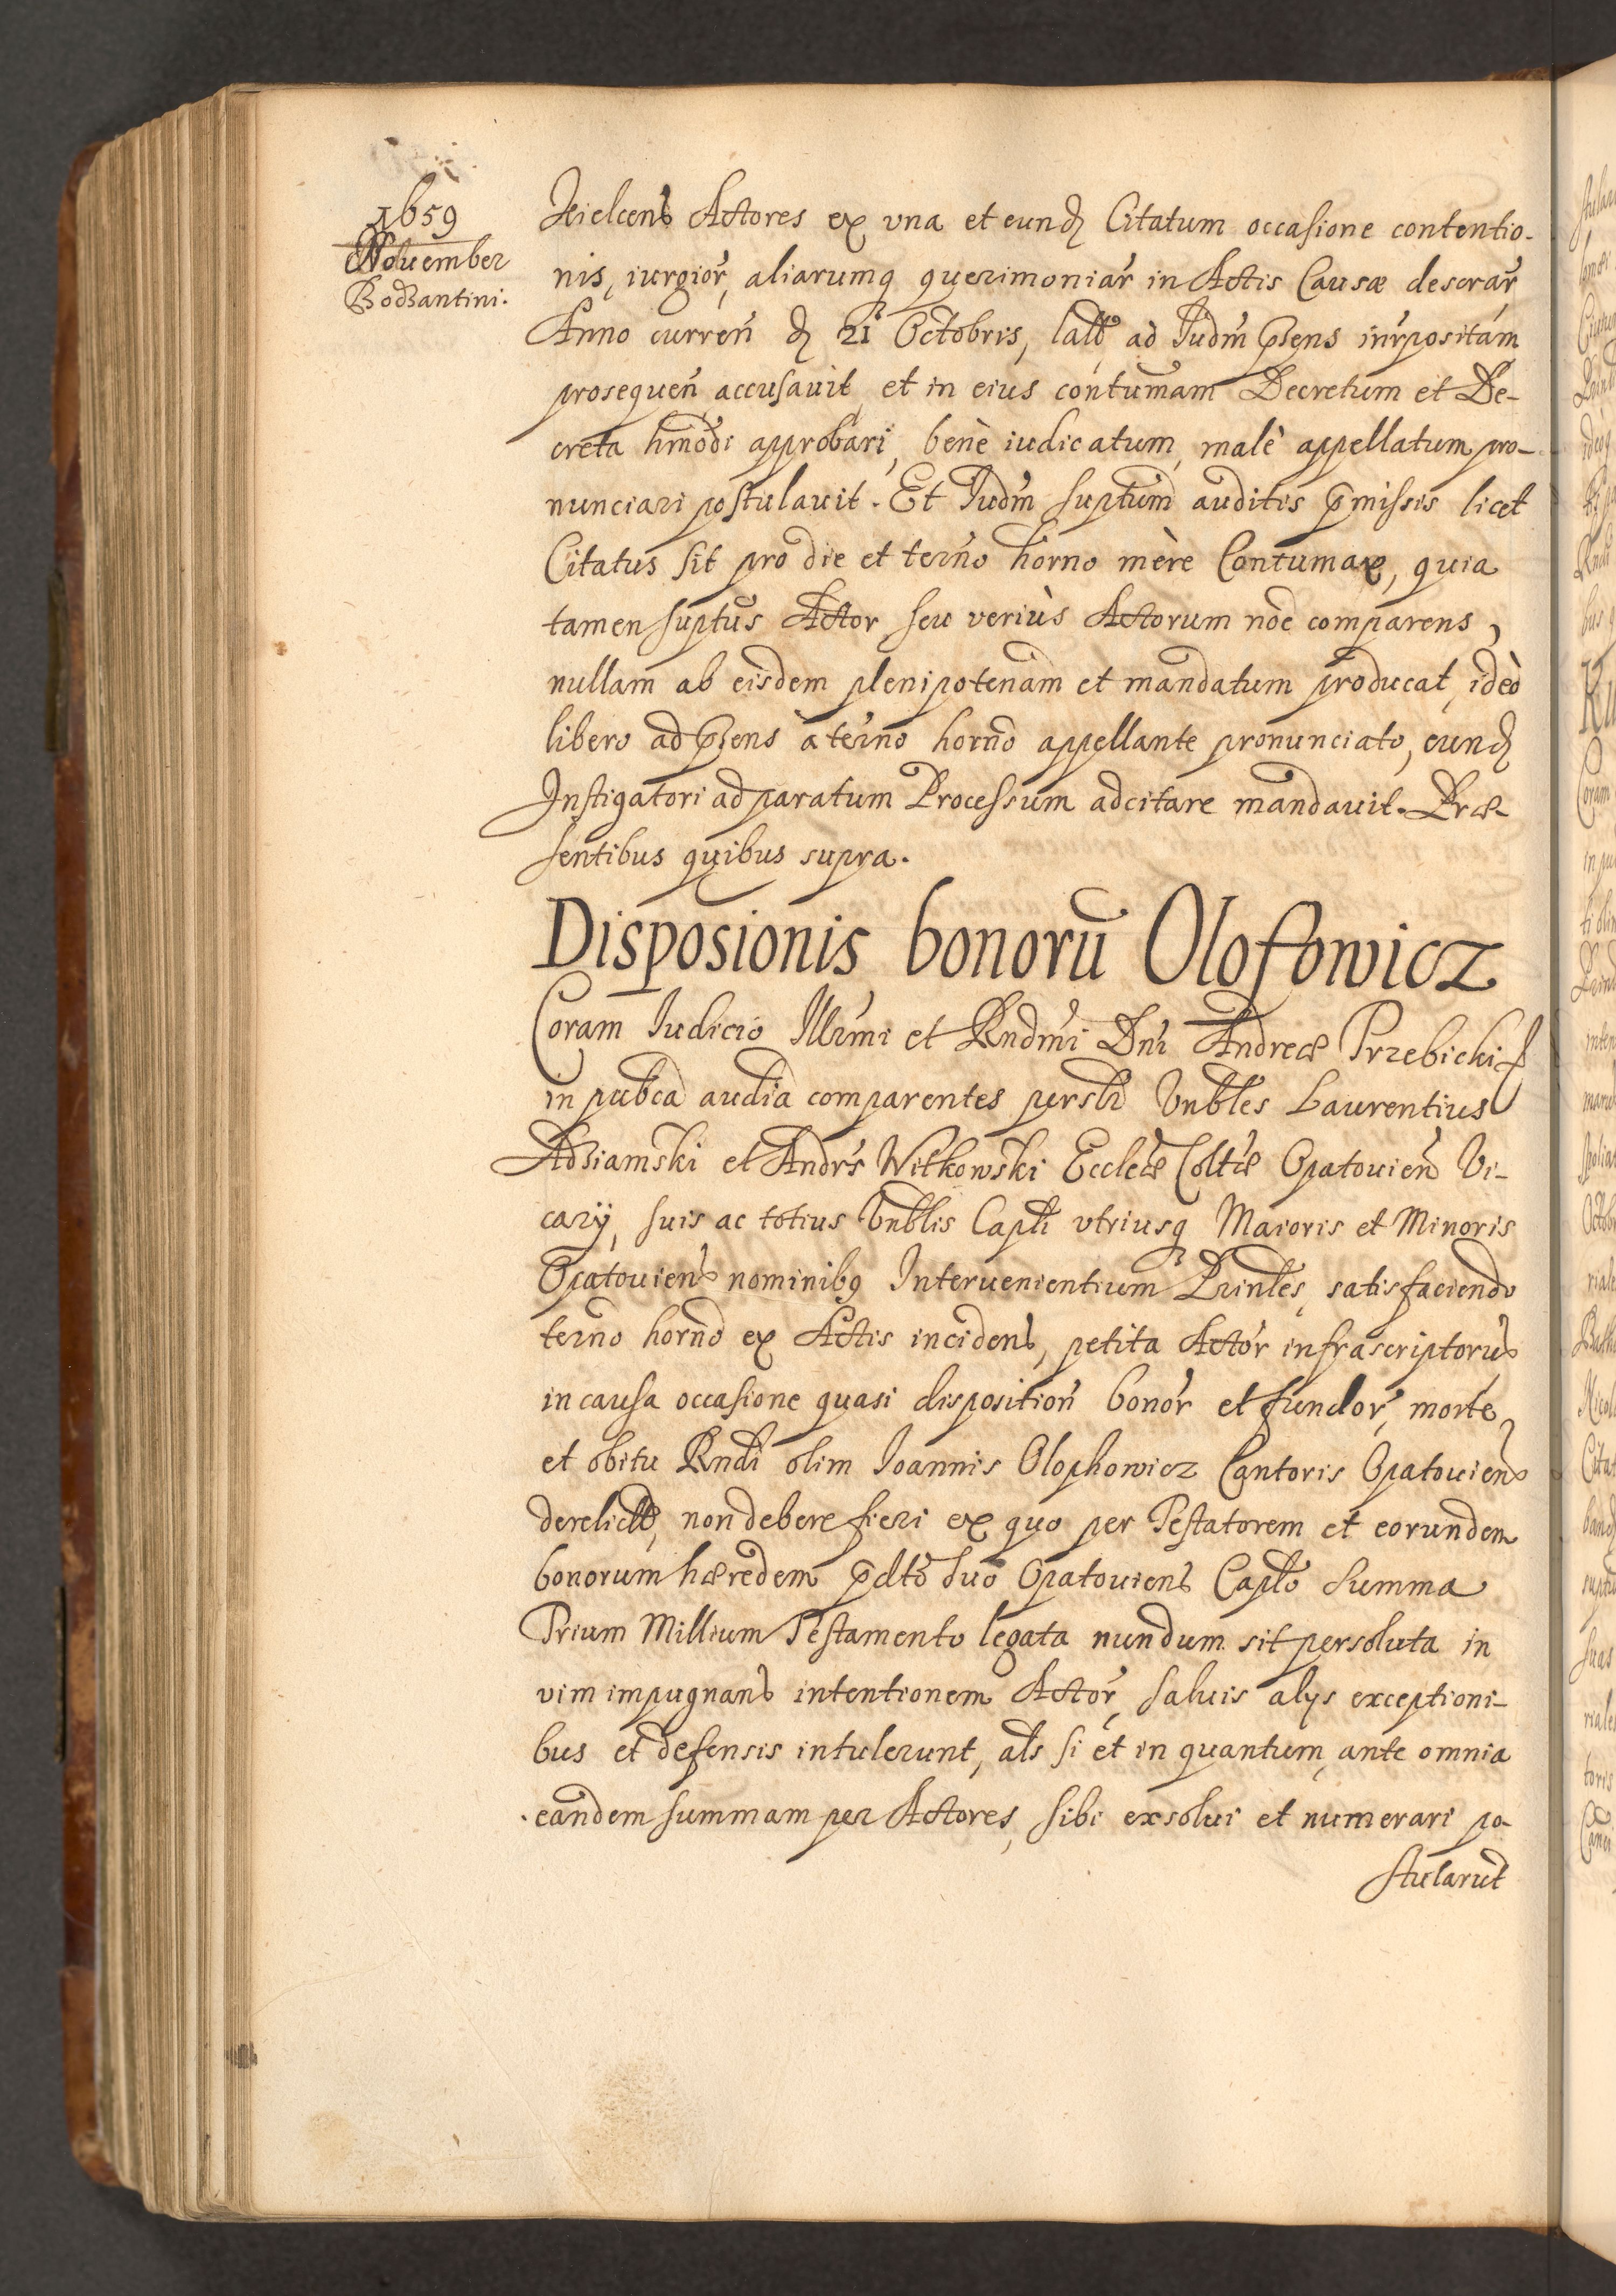 1659
Nouember
Bodzantini.
Kielcens Actores ex vna et eund Citatum occasione contentio-
nis, iurgior, aliarumq querimoniar in Actis Causæ descrar
Anno curren d 21 Octobris, latt ad Iudm psens inrpositam
prosequen accusauit, et in eius contumam Decretum et De-
creta hmodi approbari, benè iudicatum, malè appellatum pro-
nunciari postulauit. Et Iudm suptum auditis pmissis licet
Citatus sit pro die et termo horno mère Contumax, quia
tamen suptus Actor seu veriùs Actorum noe comparens,
nullam ab eisdem plenipotenam et mandatum producat, ideò
libero ad psens à termo horno appellante pronunciato, eund
Instigatori ad paratum Processum adcitare mandauit. Præ-
sentibus quibus supra.
Disposionis bonoru Olofowicz
Coram Iudicio Illrmi et Rndmi Dni Andreæ Przebicki
in pubca audia comparentes persls Vnbles Laurentius
Adziamski et Andrs Witkowski Eccleæ Coltæ Opatouien Vi-
carÿ, suis ac totius Vnblis Capli vtriusq Maioris et Minoris
Opatouiens nominibq Interuenientium Prinles, satisfaciendo
termo horno ex Actis incidens, petita Actor infrascriptorus
in causa occasione quasi disposition bonor et fundor, morte
et obitu Rndi olim Ioannis Olophowicz Cantoris Opatouiens
derelictt, non debere fieri ex quo per Testatorem et eorundem
bonorum hæredem pdto suo Opatouiens Caplo summa
Trium Millium Testamento legata nundum sit persoluta in
vim impugnans intentionem Actor, saluis alÿs exceptioni-
bus et defensis intulerunt, als si et in quantum, ante omnia
eandem summam per Actores, sibi exsolui et numerari po-
stularut